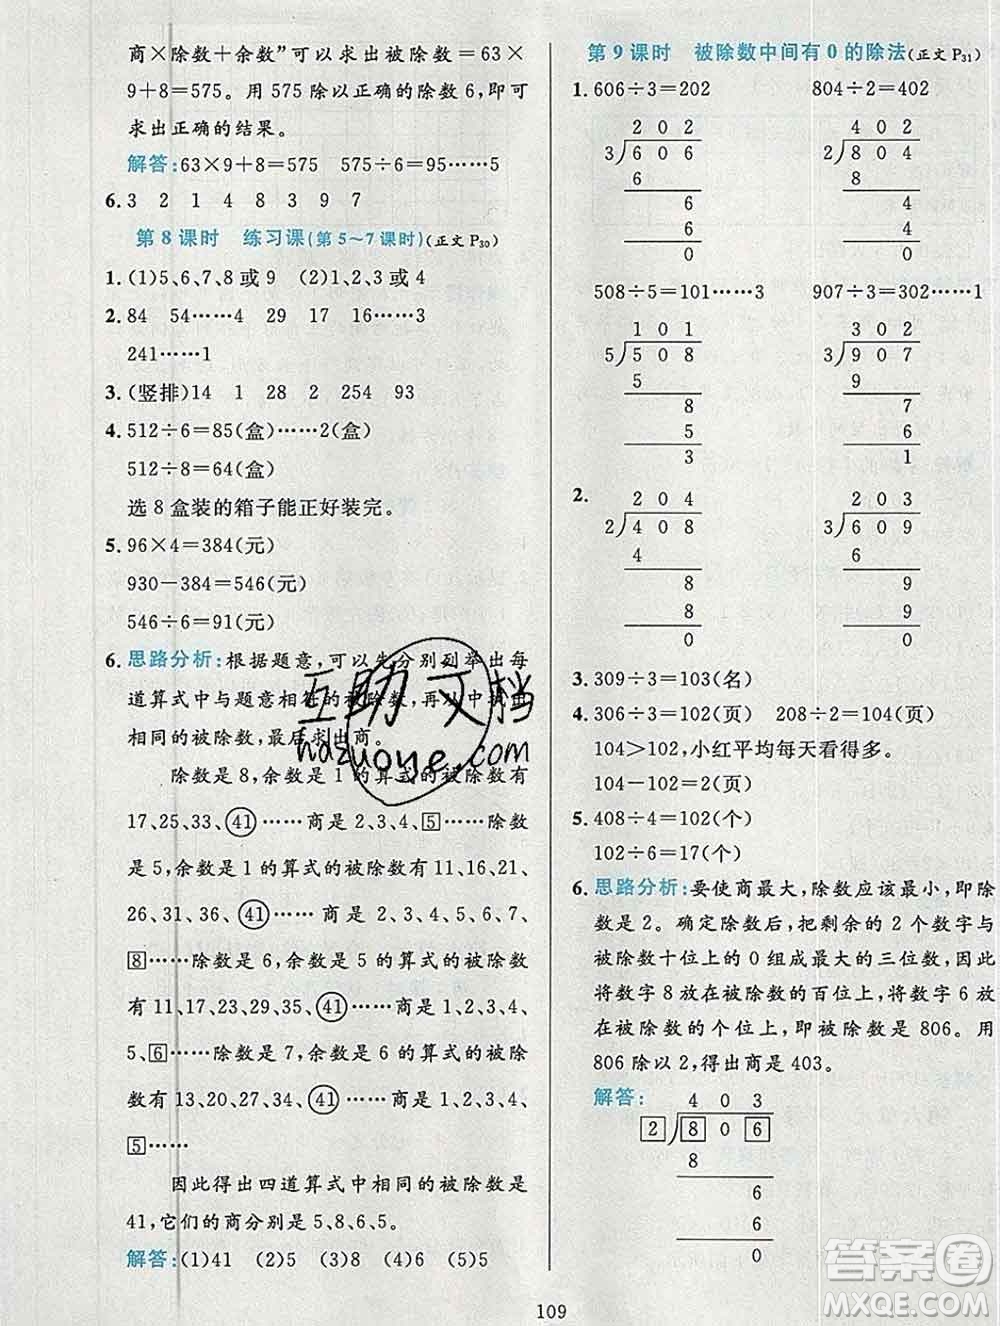 商×除数＋余数”可以求出被除数＝63×
9＋8＝575。用 575 除以正确的除数 6，即可
求出正确的结果。
解答：63×9＋8＝575　575÷6＝95……5
6. 3　2　1　4　8　3　9　7
第 8 课时　练习课(第 5～7 课时)(正文 P30)
1. (1)5、6、7、8 或 9　(2)1、2、3 或 4
2. 84　54……4　29　17　16……3
241……1
3. (竖排)14　1　28　2　254　93
4. 512÷6＝85(盒)……2(盒)
512÷8＝64(盒)
选 8 盒装的箱子能正好装完。
5. 96×4＝384(元)
930－384＝546(元)
546÷6＝91(元)
6. 思路分析：根据题意，可以先分别列举出每
道算式中与题意相符的被除数，再从中找出
相同的被除数，最后求出商。
除数是 8，余数是 1 的算式的被除数有
17、25、33、41……商是 2、3、4、5……除数
是 5，余数是 1 的算式的被除数有 11、16、21、
26、31、36、41……商是 2、3、4、5、6、7、
8……除数是 6，余数是 5 的算式的被除数
有 11、17、23、29、35、41……商是 1、2、3、4、
5、6……除数是 7，余数是 6 的算式的被除
数有 13、20、27、34、41……商是 1、2、3、4、
5……
因此得出四道算式中相同的被除数是
41，它们的商分别是 5、8、6、5。
解答：(1)41　(2)5　(3)8　(4)6　(5)5
第 9 课时　被除数中间有 0 的除法(正文 P31)
1. 606÷3＝202　804÷2＝402
2 0 2　4 0 2
3 6 0 6　2 8 0 4
6　8
6　4
6　4
0　0
508÷5＝101……3　907÷3＝302……1
1 0 1　3 0 2
5 5 0 8　3 9 0 7
5　9
8　7
5　6
3　1
2. 2 0 4　2 0 3
2 4 0 8　3 6 0 9
4　6
8　9
8　9
0　0
3. 309÷3＝103(名)
4. 306÷3＝102(页)　208÷2＝104(页)
104＞102，小红平均每天看得多。
104－102＝2(页)
5. 408÷4＝102(个)
102÷6＝17(个)
6. 思路分析：要使商最大，除数应该最小，即除
数是 2。确定除数后，把剩余的 2 个数字与
被除数十位上的 0 组成最大的三位数，因此
将数字 8 放在被除数的百位上，将数字 6 放
在被除数的个位上，即被除数是 806。用
806 除以 2，得出商是 403。
解答：4 0 3
2 8 0 6
8
6
6
0
109
互助文档
hazuoye.com
答案圈
MXQE.COM